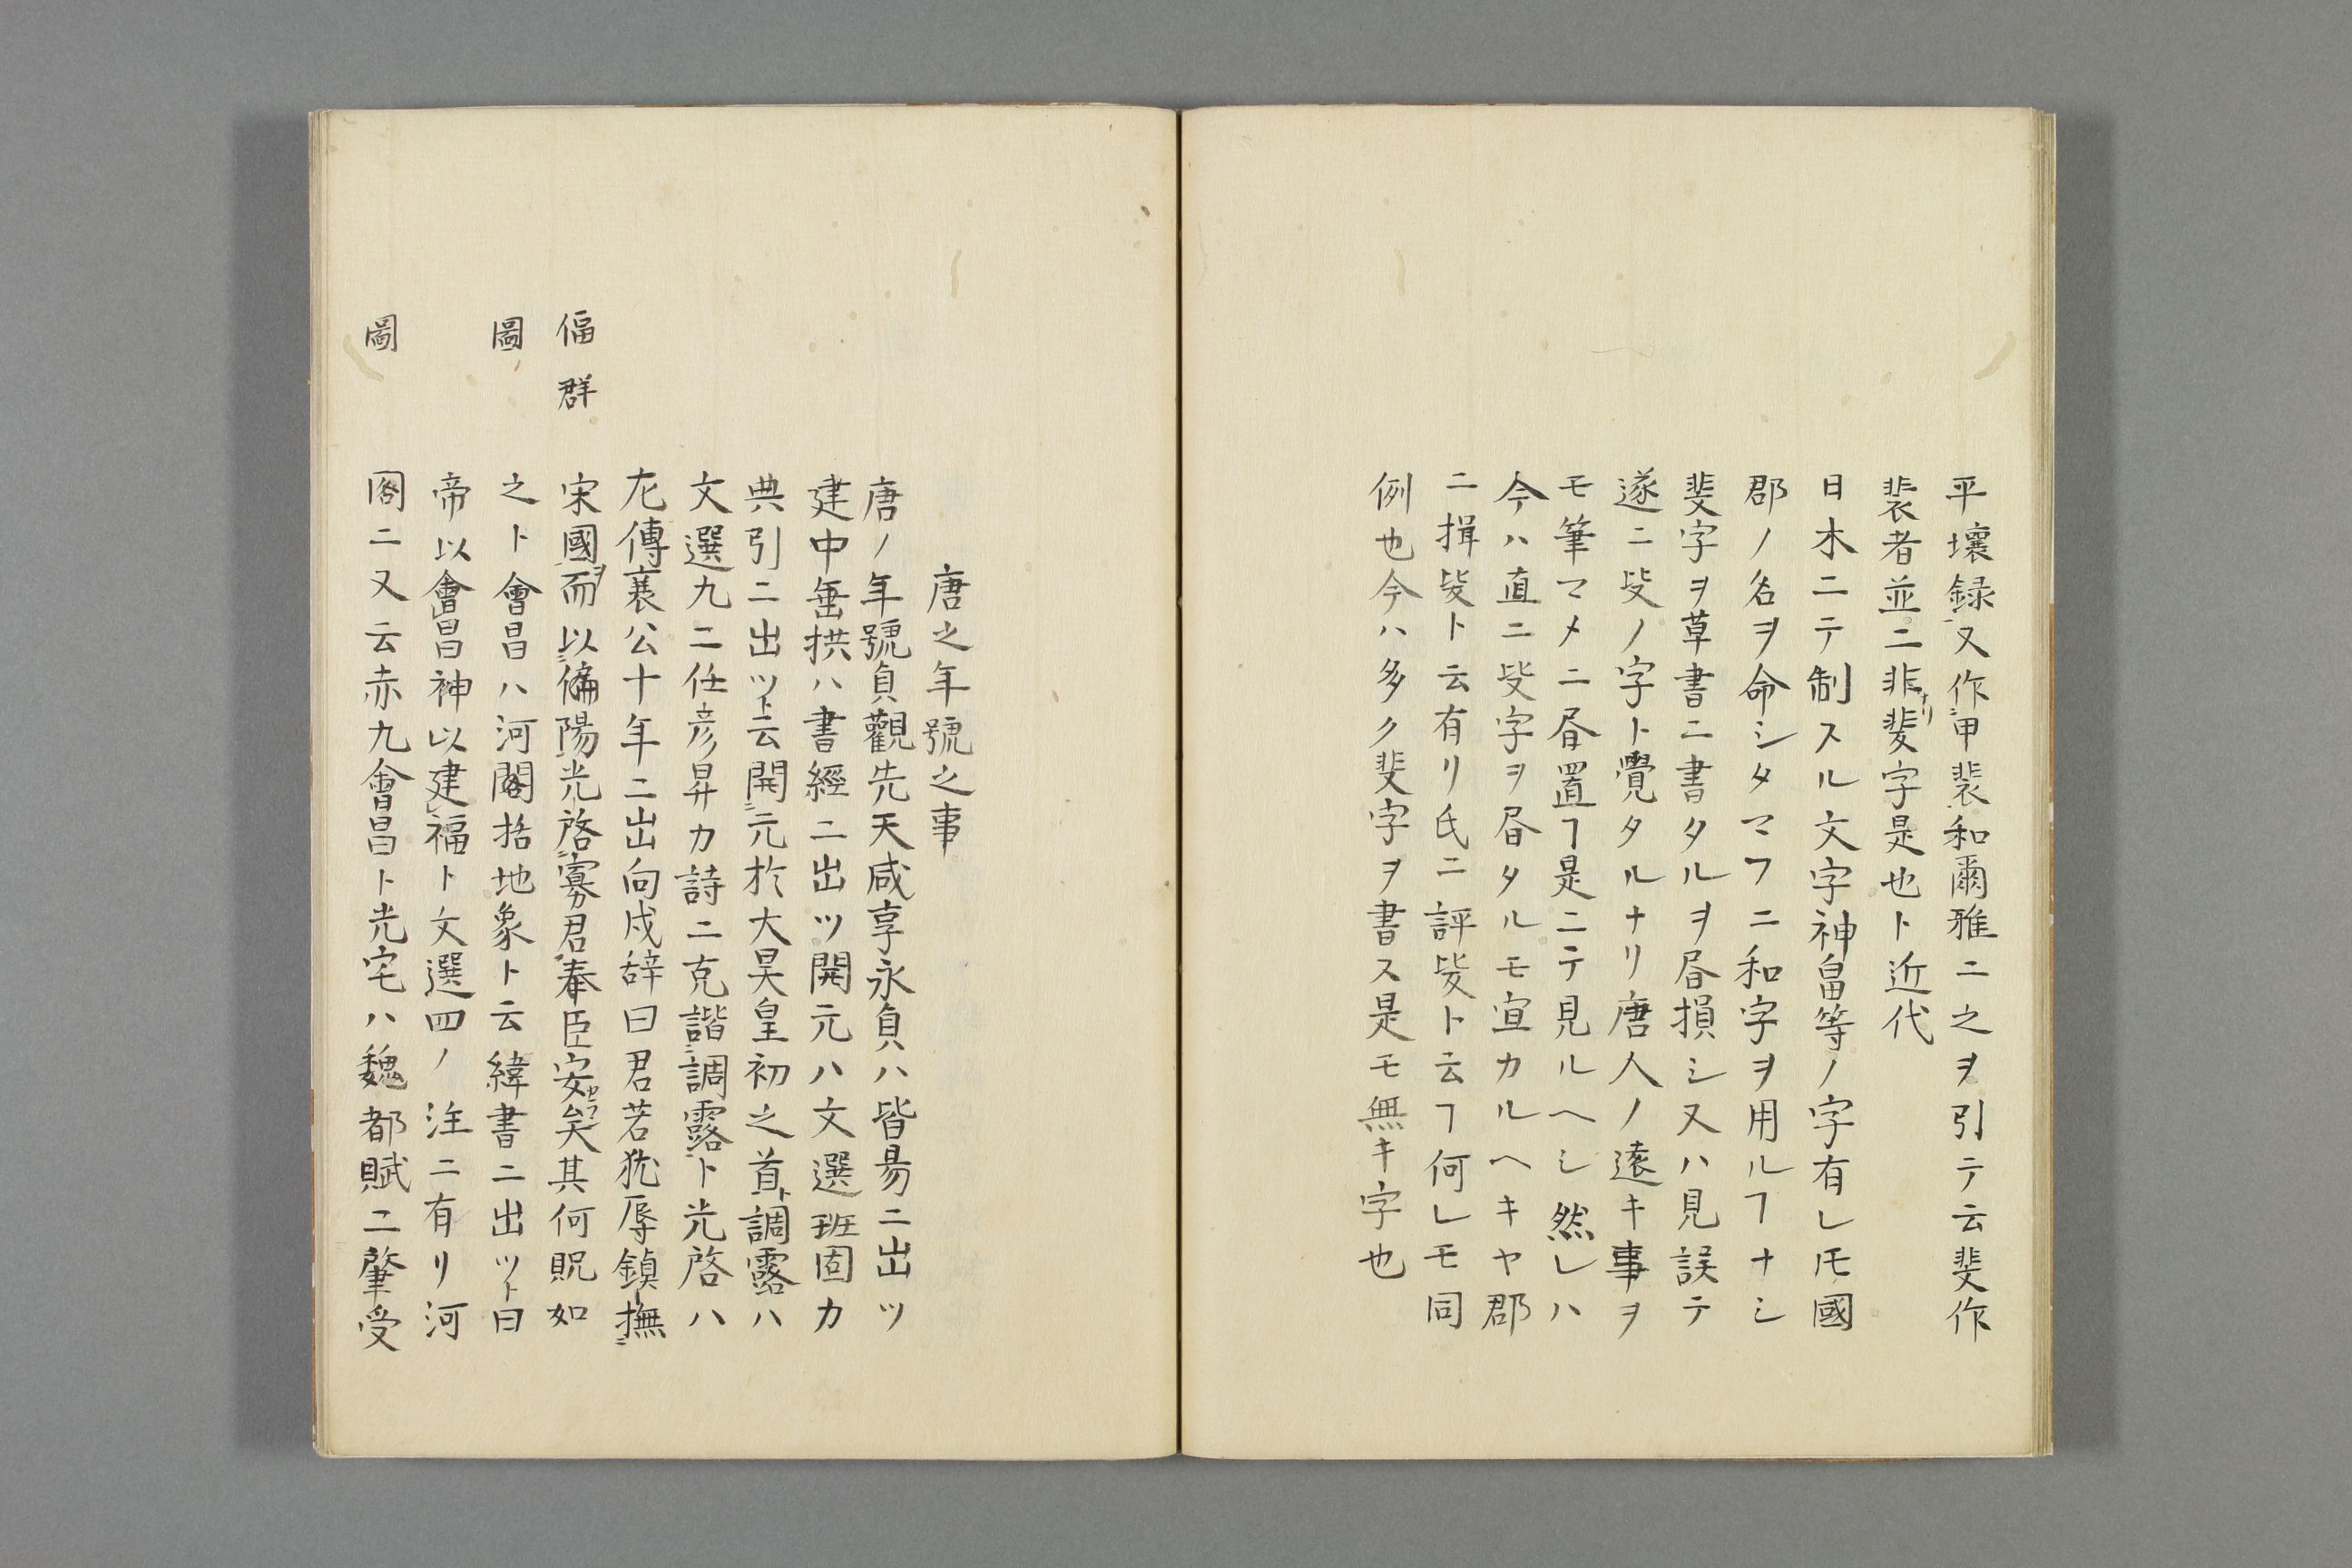 平壤録又作甲裴和爾雅ニ之ヲ引テ云斐作
裴者並ニ非ナリ斐字是也ト近代
日木ニテ制スル文字神畠等ノ字有レ𪜈國
郡ノ名ヲ命シタマフニ和字ヲ用ルヿナシ
斐字ヲ草書ニ書タルヲ昼損シ又ハ見誤テ
遂ニ㚲ノ字ト覺タルナリ唐人ノ遠キ事ヲ
モ筆マメニ昼置ヿ是ニテ見ルヘシ然レハ
今ハ直ニ㚲字ヲ昼タルモ宜カルヘキヤ郡
ニ揖㚲ト云有リ氏ニ評㚲ト云ヿ何レモ同
例也今ハ多ク斐字ヲ書ス是モ無キ字也
唐之年號之事
唐ノ年號貞觀先天咸享永貞ハ皆昜ニ出ツ
建中垂拱ハ書經ニ出ツ開元ハ文選班固カ
典引ニ出ツト云開元於大昊皇初之首ト調露ハ
文選九ニ任彦昇カ詩ニ克諧調露ト光啓ハ
左傳襄公十年ニ出向戍辞曰君若犹辱鎮撫
宋國而ヲ以偪陽光啓寡君奉臣安矣其何貺如
之ト會昌ハ河閣括地象ト云緯書ニ出ツト曰
帝以會昌神以建福ト文選四ノ注ニ有リ河
閣ニ又云赤九會昌ト光宅ハ魏都賦ニ肇受
偪群
圖
圖